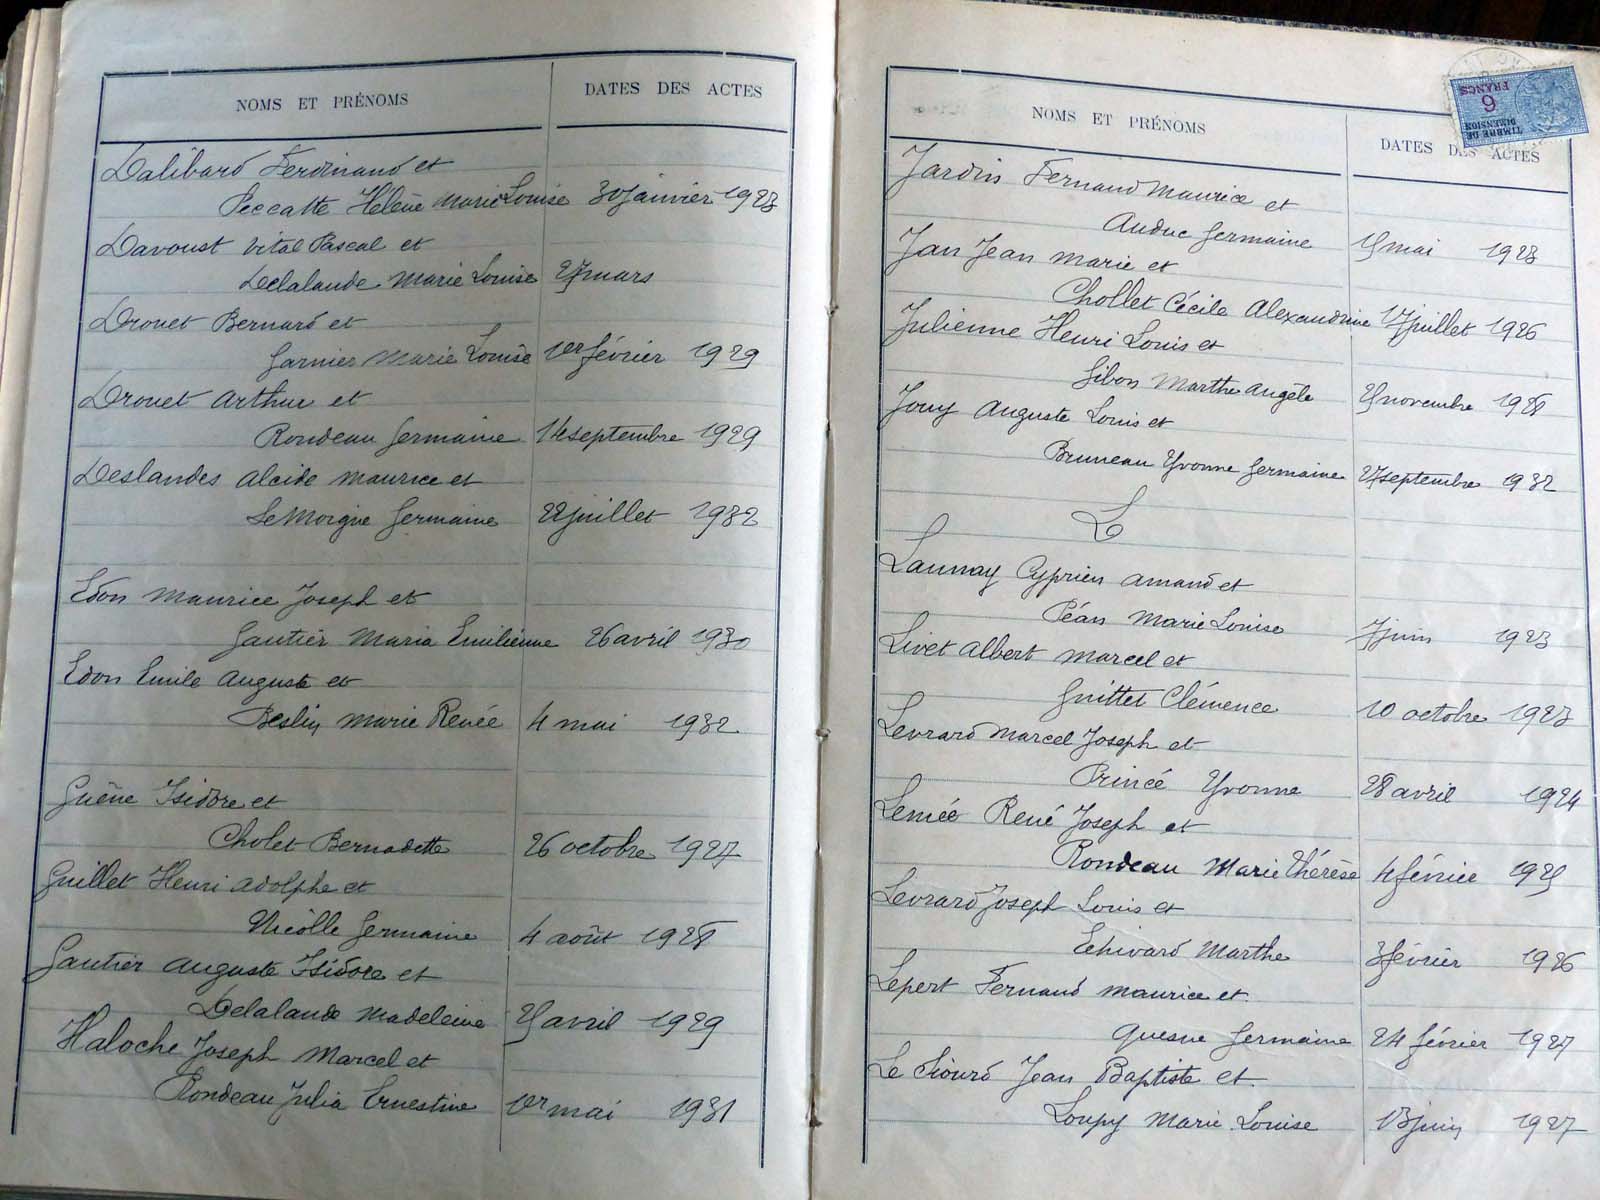 NOMS ET PRÉNOMS DATES DES ACTES
Dalibard Ferdinand et
Peccatte Hélène Marie Louise 30 janvier 1923
Davoust Vital Pascal et
Delalande Marie Louise 27 mars
Drouet Bernard et
Garnier Marie Louise 1er février 1929
Drouet Arthur et
Rondeau Germaine 14 septembre 1929
Deslandes Alcide Maurice et
Le Moigne Germaine 22 juillet 1932
Edon Maurice Joseph et
Gautier Maria Emilienne 26 avril 1930
Edon Emile Auguste et
Beslin Marie Renée 4 mai 1932
Guène Isidore et
Cholet Bernadette 26 octobre 1927
Guillet Henri Adolphe et
Nicolle Germaine 4 août 1928
Gautier Auguste Isidore et
Delalande Madeleine avril 1929
Haloche Joseph Marcel et
Rondeau Julia Ernestine 1er mai 1931
NOMS ET PRÉNOMS DATES DES ACTES
TIMBRE DE
DIMENSION
6
FRANCS
Jardin Fernand Maurice et
Auduc Germaine mai 1923
Jan Jean Marie et
Chollet Cécile Alexandrine 17 juillet 1926
Julienne Henri Louis et
Gibon Marthe Angèle novembre 1928
Jouy Auguste Louis et
Bruneau Yvonne Germaine 27 septembre 1932
L
Launay Cyprien Amand et
Péan Marie Louise 7 juin 1923
Livet Albert Marcel et
Guittet Clémence 10 octobre 1923
Levrard Marcel Joseph et
Princé Yvonne 28 avril 1924
Lemée René Joseph et
Rondeau Marie Thérèse 4 février 1925
Levrard Joseph Louis et
Echivard Marthe 3 février 1926
Lepert Fernand Maurice et
Quesne Germaine 24 février 1927
Le Siourd Jean Baptiste et
Loupy Marie Louise 13 juin 1927